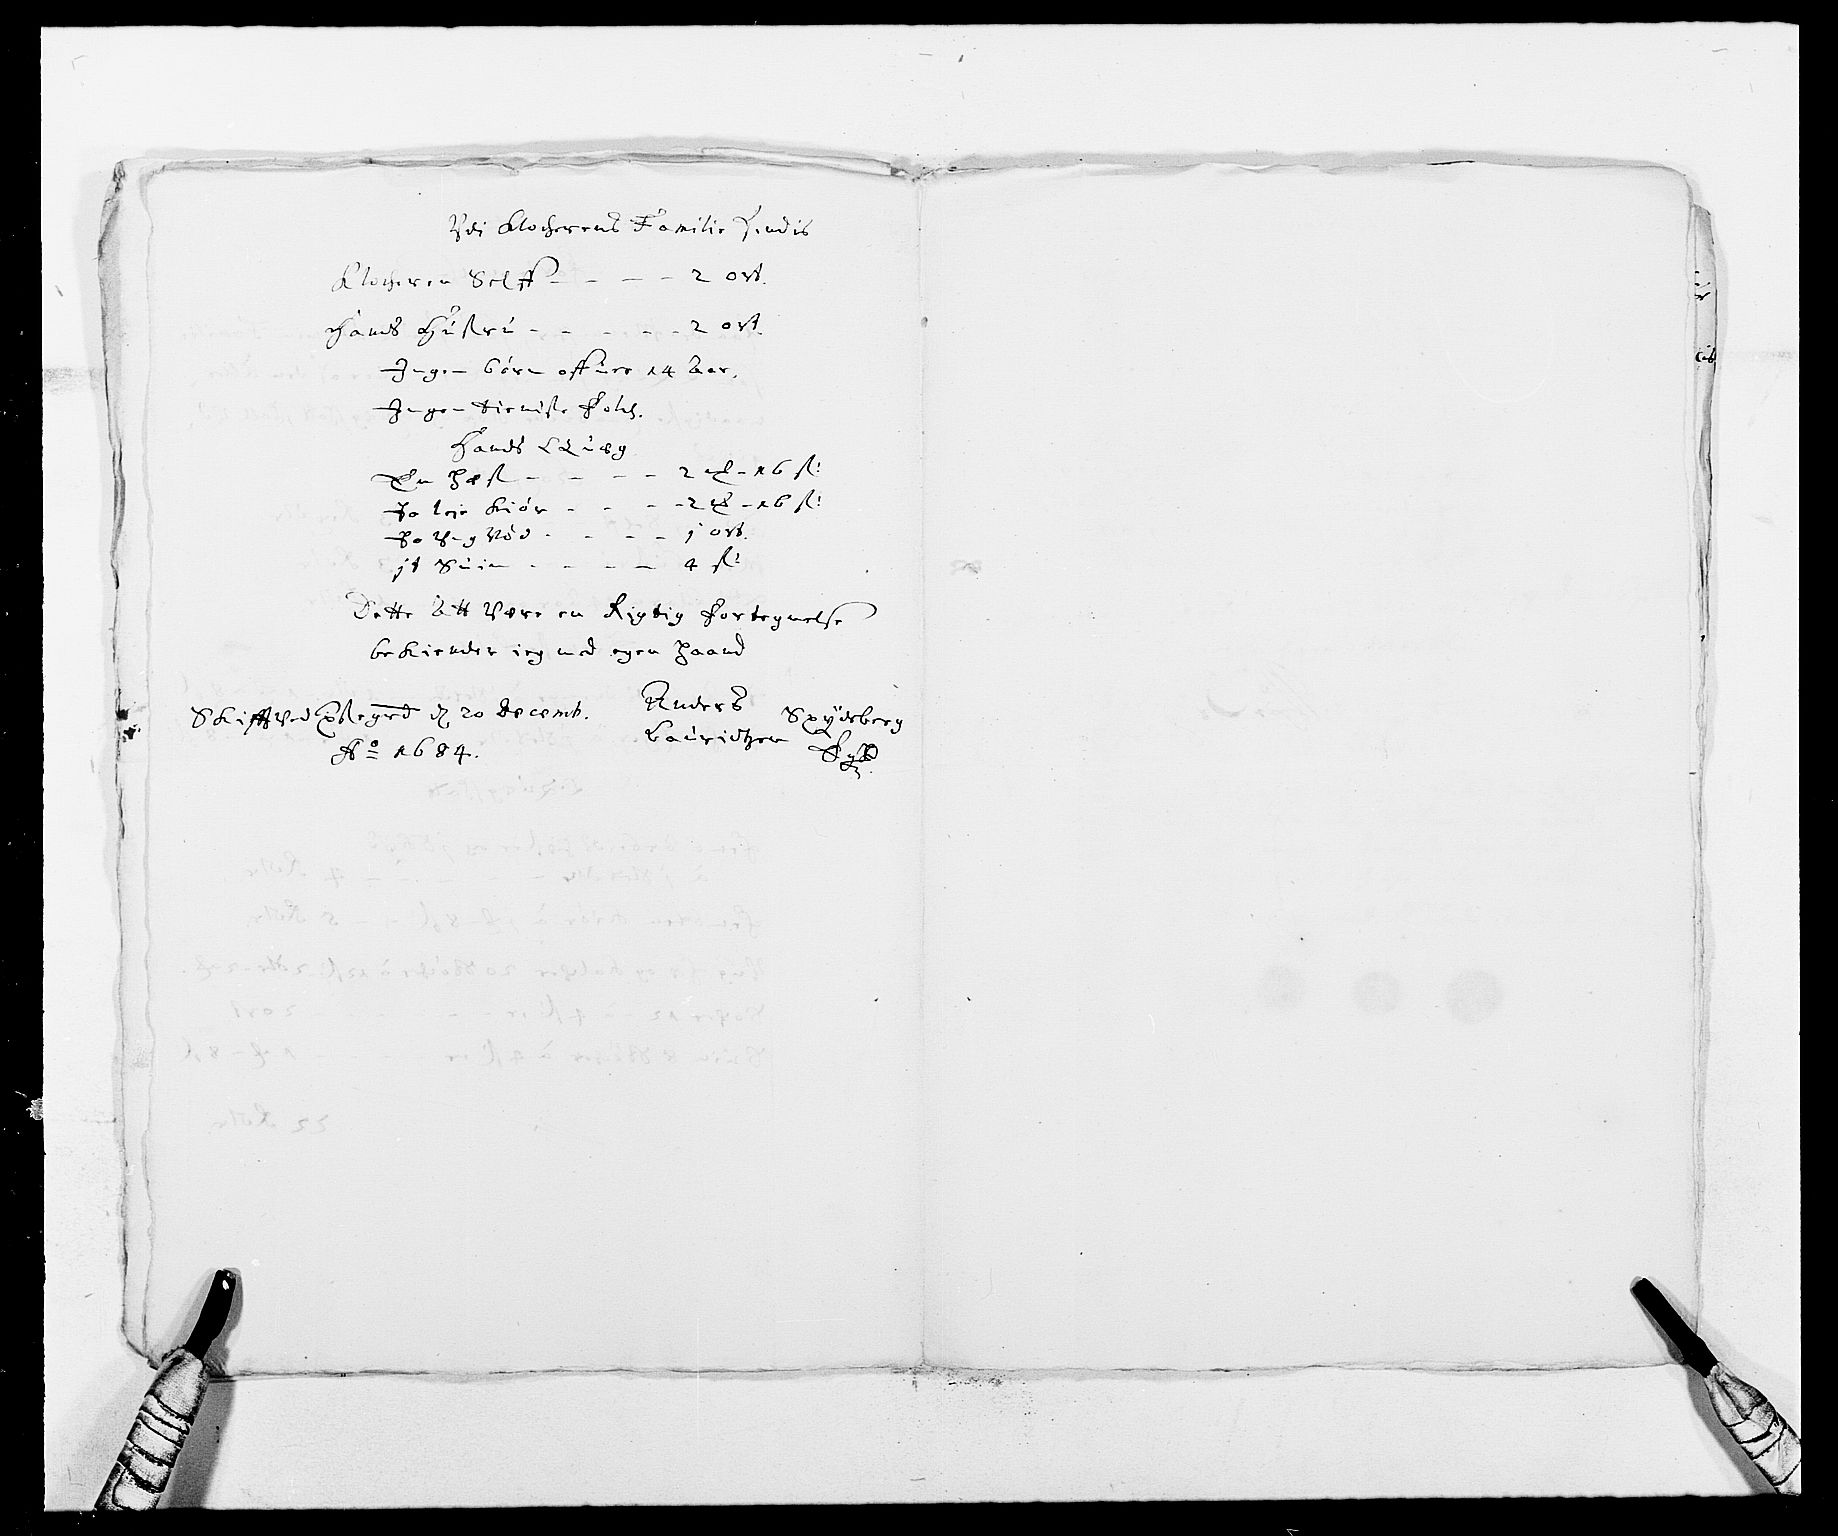 Udi Klocherens Familie findis
Klocheren Selff - - - - 2 ort.
Hands Hústrú - - - - - 2 ort.
Ingen börn offúer 14 Aar.
Ingen tieniste folch.
Hands QQúæg
En Hæst - - - - 2 - 16 ss:
To leje Kiör - - - - 2 - 16 ss:
To Ung Nöd - - - - 1 ort.
jt Súin - - - - 4 ss:
Dette Att Være en Rigtig fortegnelse
bekiender ieg med egen Haand
Skifftved Præstegrd d 20 Decemb.
Ao 1684.
Anders
Lauridtzen
Spydeberg